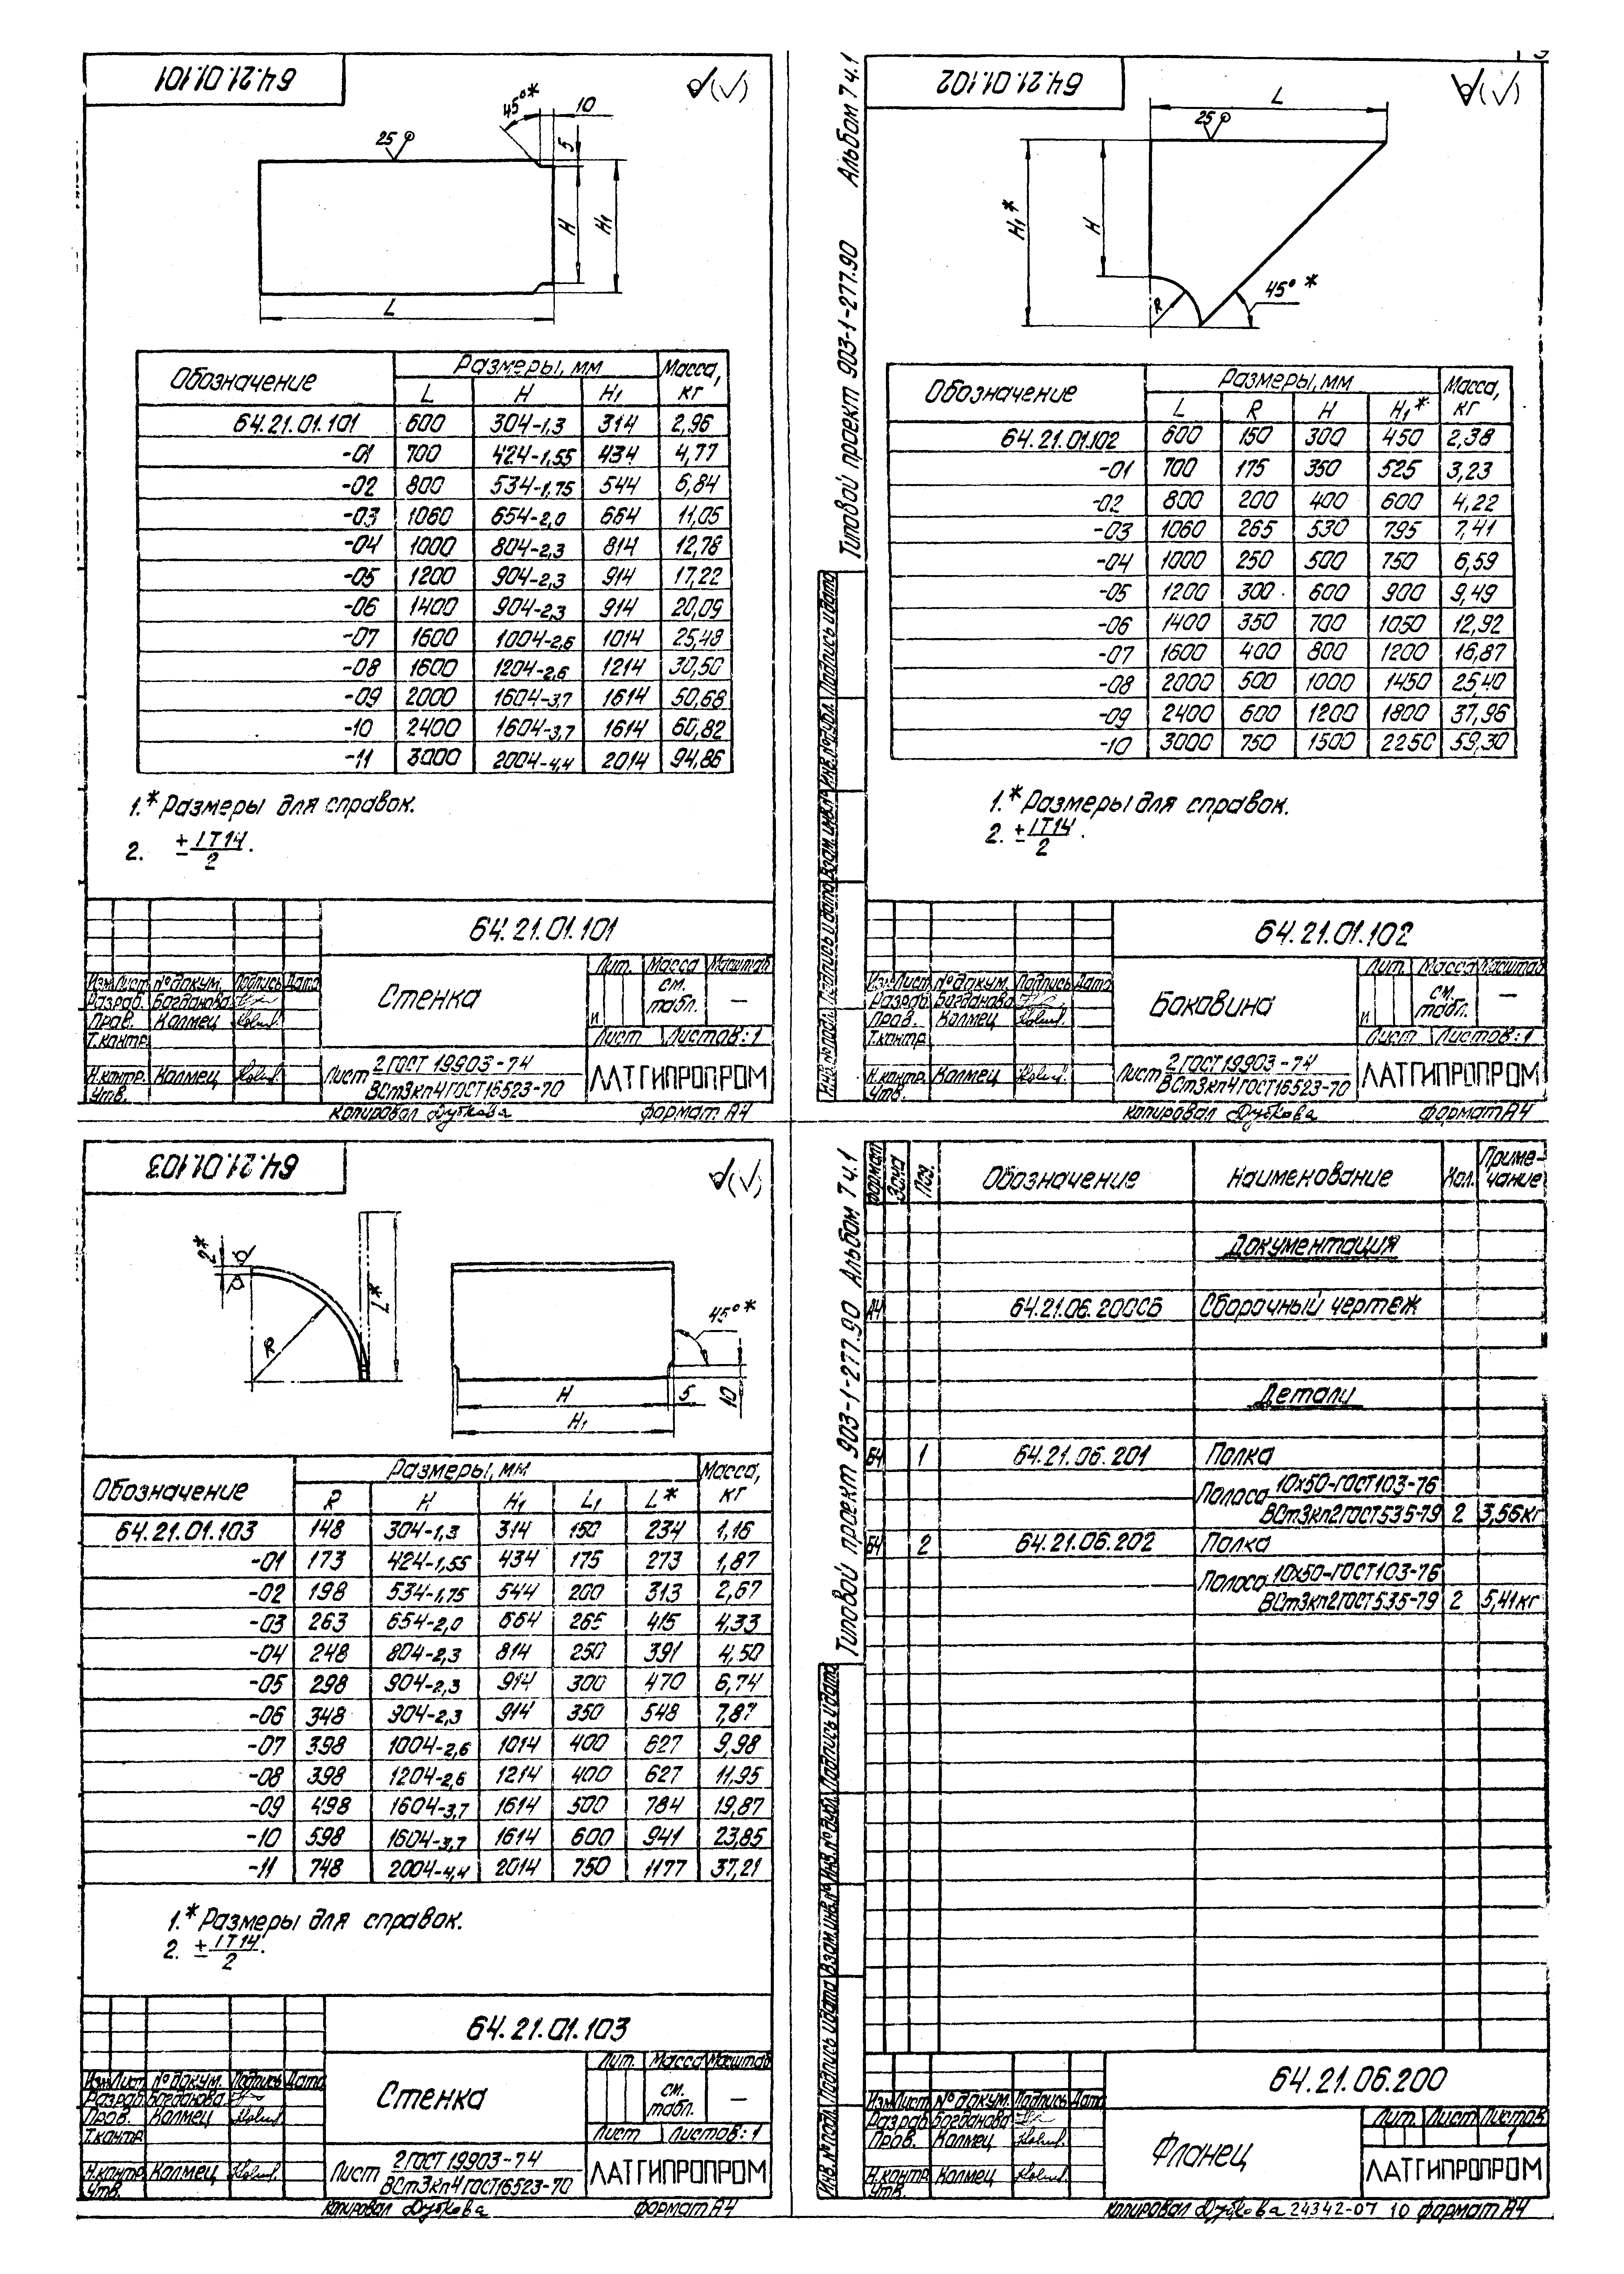 64.21.01.101
45°*
10
25
5
H
H₁
L
Обозначение Размеры, мм Масса, кг
L H H₁
64.21.01.101 600 304-1,3 314 2,96
-01 700 424-1,55 434 4,77
-02 800 534-1,75 544 6,84
-03 1060 654-2,0 664 11,05
-04 1000 804-2,3 814 12,78
-05 1200 904-2,3 914 17,22
-06 1400 904-2,3 914 20,09
-07 1600 1004-2,6 1014 25,48
-08 1600 1204-2,6 1214 30,50
-09 2000 1604-3,7 1614 50,68
-10 2400 1604-3,7 1614 60,82
-11 3000 2004-4,4 2014 94,86
1.* Размеры для справок.
2. ± IT14/2.
64.21.01.101
Изм Лист № докум. Подпись Дата
Разраб. Богданова
Пров. Калмец
Т.контр.
Н.контр. Калмец
Утв.
Стенка
Лит. Масса Масштаб
И см. табл. —
Лист Листов: 1
Лист 2 ГОСТ 19903-74
ВСт3кп4 ГОСТ 16523-70
ЛАТГИПРОПРОМ
Копировал Дубкова формат А4
Типовой проект 903-1-277.90 Альбом 7 ч.1
64.21.01.102
L
25
H₁*
H
R
45°*
Обозначение Размеры, мм Масса, кг
L R H H₁*
64.21.01.102 600 150 300 450 2,38
-01 700 175 350 525 3,23
-02 800 200 400 600 4,22
-03 1060 265 530 795 7,41
-04 1000 250 500 750 6,59
-05 1200 300 600 900 9,49
-06 1400 350 700 1050 12,92
-07 1600 400 800 1200 16,87
-08 2000 500 1000 1450 25,40
-09 2400 600 1200 1800 37,96
-10 3000 750 1500 2250 59,30
1.* Размеры для справок.
2. ± IT14/2.
Инв.№ подл. Подпись и дата Взам.инв.№ Инв.№ дубл. Подпись и дата
64.21.01.102
Изм Лист № докум. Подпись Дата
Разраб. Богданова
Пров. Калмец
Т.контр.
Н.контр. Калмец
Утв.
Боковина
Лит. Масса Масштаб
И см. табл. —
Лист Листов: 1
Лист 2 ГОСТ 19903-74
ВСт3кп4 ГОСТ 16523-70
ЛАТГИПРОПРОМ
Копировал Дубкова формат А4
64.21.01.103
2*
R
L*
45°*
H
5
10
H₁
Обозначение Размеры, мм Масса, кг
R H H₁ L₁ L*
64.21.01.103 148 304-1,3 314 150 234 1,16
-01 173 424-1,55 434 175 273 1,87
-02 198 534-1,75 544 200 313 2,67
-03 263 654-2,0 664 265 415 4,33
-04 248 804-2,3 814 250 391 4,50
-05 298 904-2,3 914 300 470 6,74
-06 348 904-2,3 914 350 548 7,87
-07 398 1004-2,6 1014 400 627 9,98
-08 398 1204-2,6 1214 400 627 11,95
-09 498 1604-3,7 1614 500 784 19,87
-10 598 1604-3,7 1614 600 941 23,85
-11 748 2004-4,4 2014 750 1177 37,21
1.* Размеры для справок.
2. ± IT14/2.
64.21.01.103
Изм Лист № докум. Подпись Дата
Разраб. Богданова
Пров. Калмец
Т.контр.
Н.контр. Калмец
Утв.
Стенка
Лит. Масса Масштаб
см. табл. —
Лист Листов: 1
Лист 2 ГОСТ 19903-74
ВСт3кп4 ГОСТ 16523-70
ЛАТГИПРОПРОМ
Копировал Дубкова формат А4
Типовой проект 903-1-277.90 Альбом 7 ч.1
Формат Зона Поз. Обозначение Наименование Кол. Примечание
Документация
А4 64.21.06.200СБ Сборочный чертеж
Детали
Б4 1 64.21.06.201 Полка
Полоса 10х50-ГОСТ103-76
ВСт3кп2ГОСТ535-79 2 3,56кг
Б4 2 64.21.06.202 Полка
Полоса 10х50-ГОСТ103-76
ВСт3кп2ГОСТ535-79 2 5,41кг
Инв.№ подл. Подпись и дата Взам.инв.№ Инв.№ дубл. Подпись и дата
64.21.06.200
Изм Лист № докум. Подпись Дата
Разраб. Богданова
Пров. Калмец
Н.контр. Калмец
Утв.
Фланец
Лит. Лист Листов
1
ЛАТГИПРОПРОМ
Копировал Дубкова 24342-07 10 формат А4